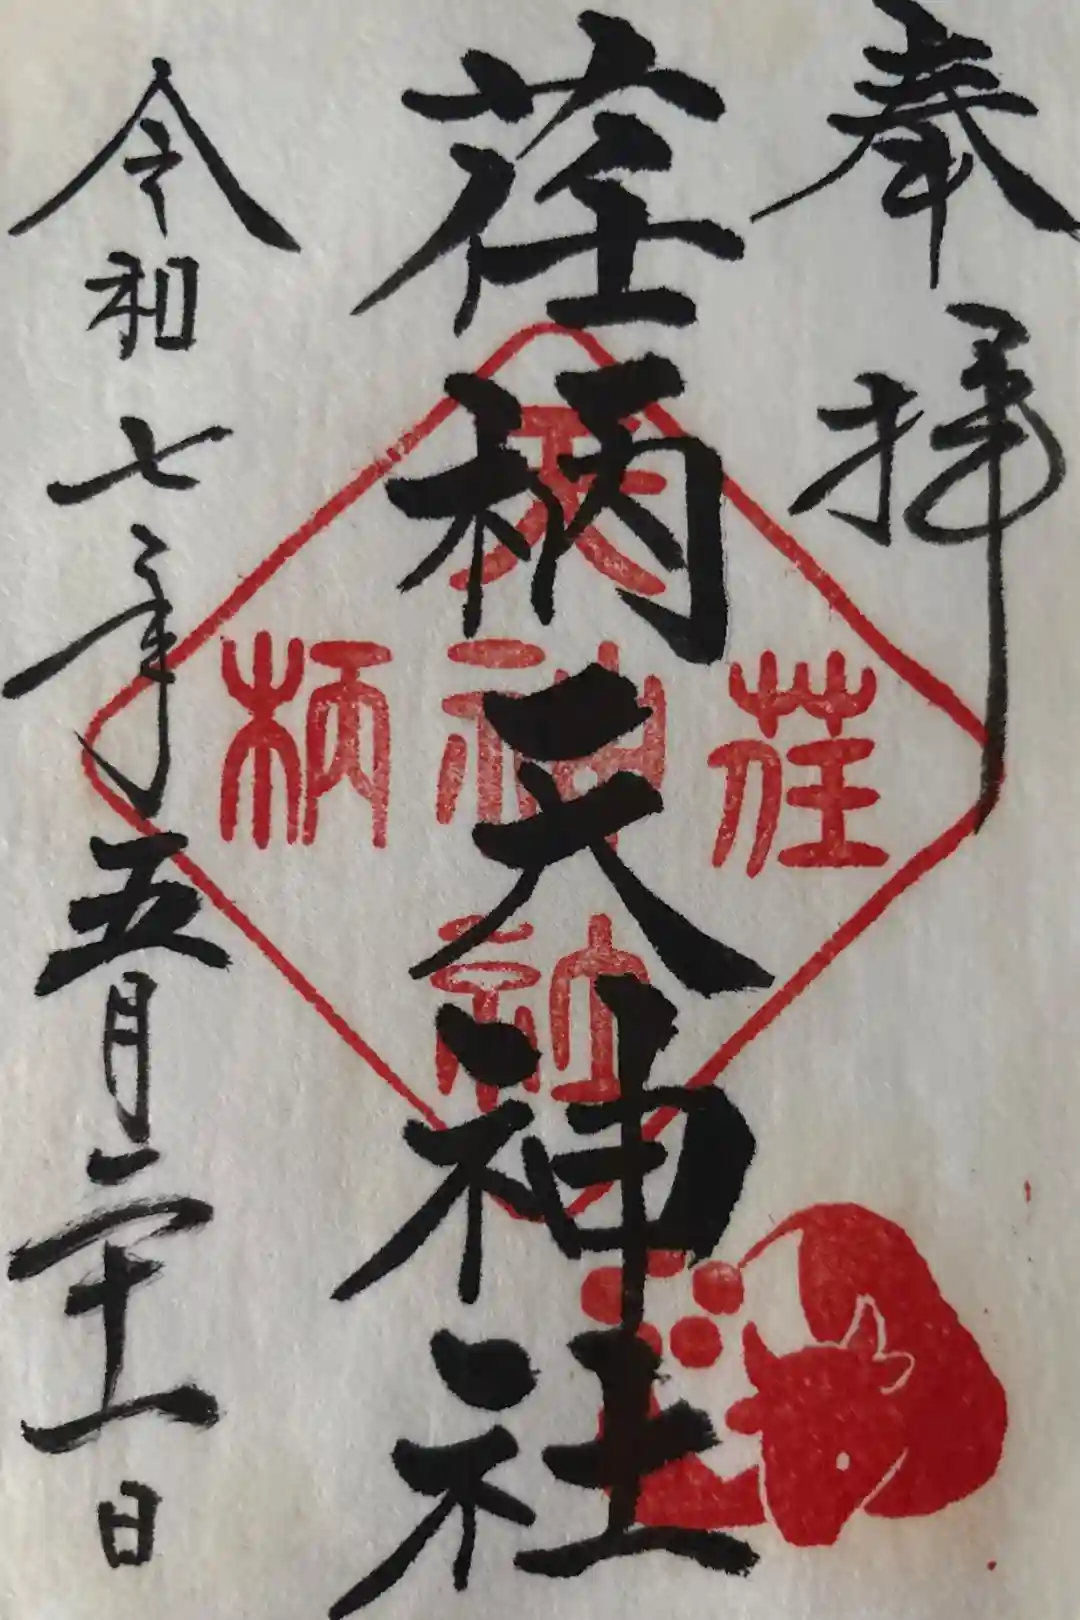 奉拝
荏柄天神社
令和七年五月二十一日
荏
天
神
社
柄